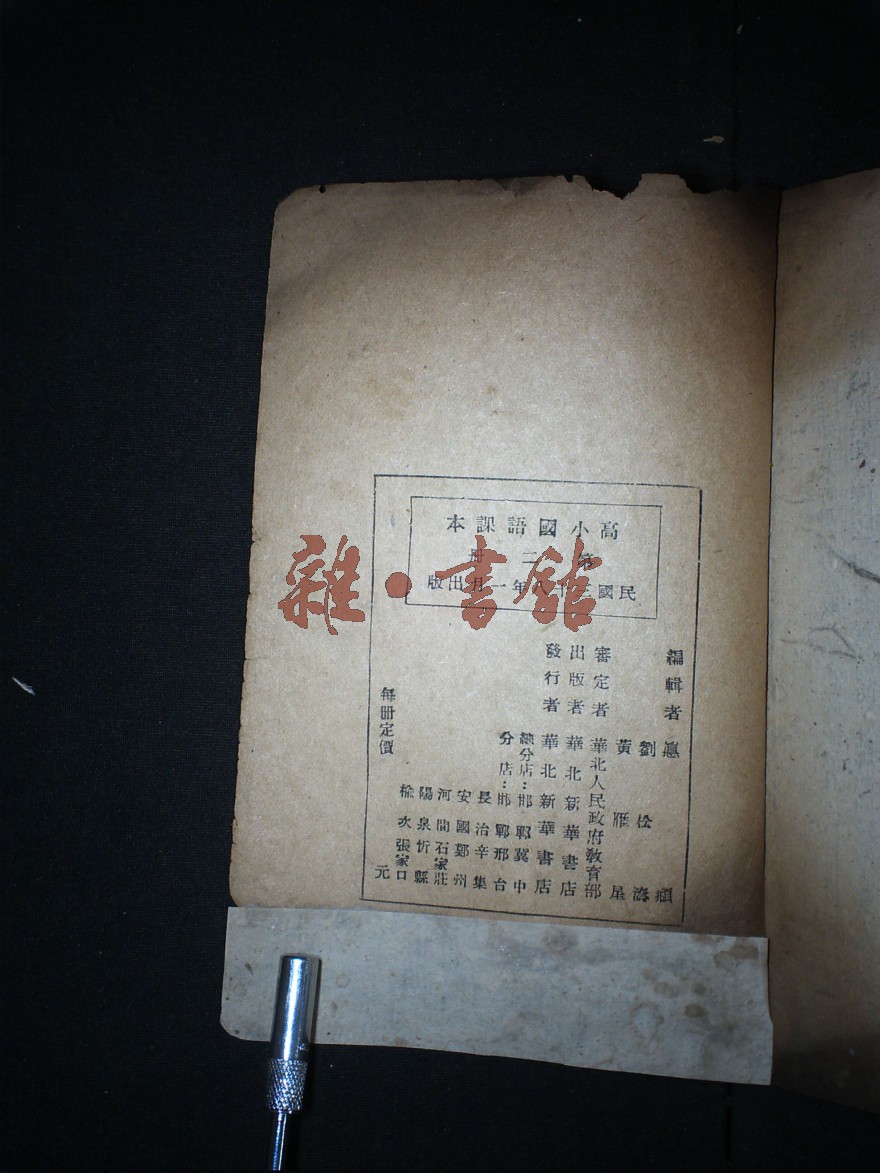 高小國語課本
第二冊
民國三十八年一月出版
雜·書館
編輯者 惠頒
劉松濤
黃雁星
審定者 華北人民政府教育部
出版者 華北新華書店
發行者 華北新華書店
總分店：邯鄲 冀中
分店：邯鄲 邢台
長治 辛集
安國 鄭州
河間 石家莊
陽泉 忻縣
榆次 張家口
每冊定價 元